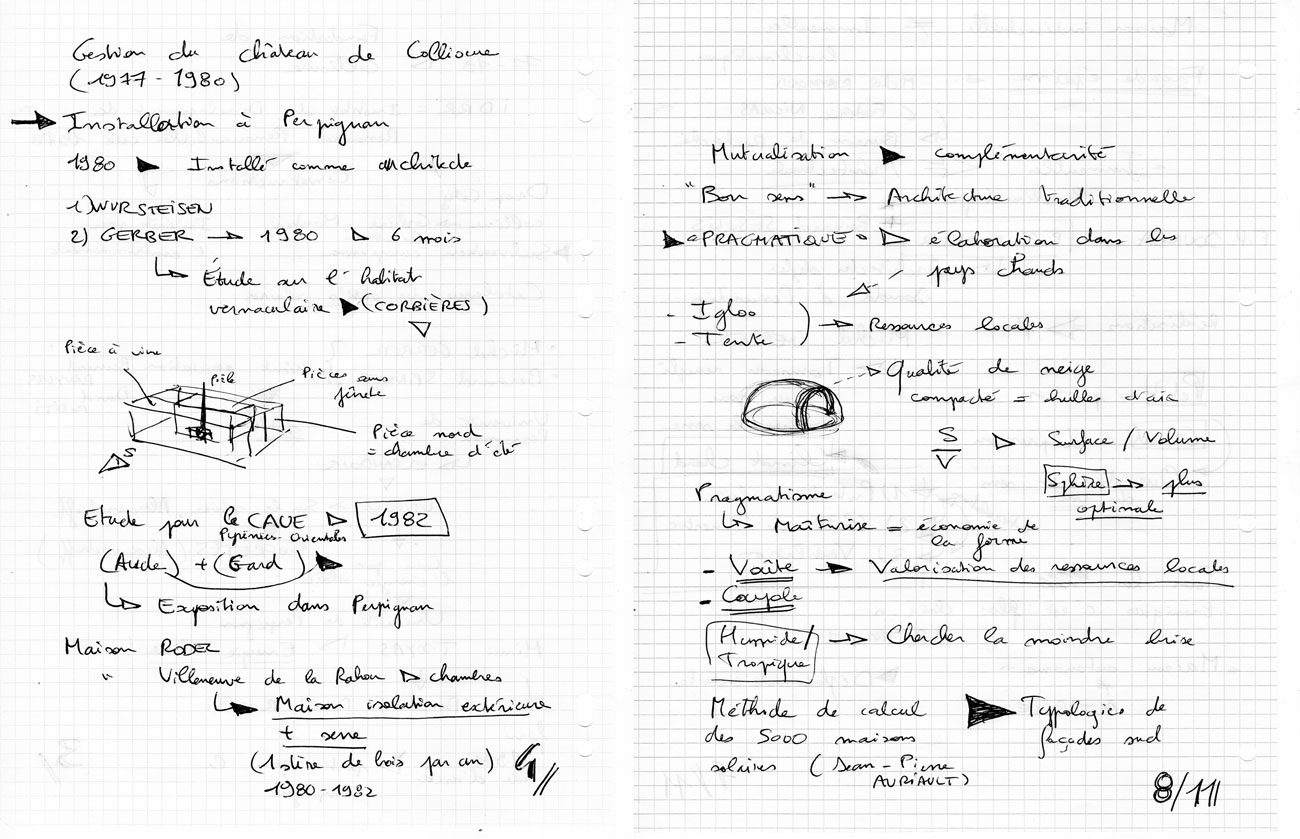 Gestion du château de Collioure
(1977 - 1980)
Installation à Perpignan
1980 Installé comme architecte
1) WURSTEISEN
2) GERBER 1980 6 mois
Étude sur l'habitat
vernaculaire (CORBIÈRES)
Pièce à vivre
Pièle
Pièces sans
fenête
Pièce nord
= chambre d'été
S
Etude pour le CAUE 1982
Pyrénées Orientales
(Aude) + (Gard)
Exposition dans Perpignan
Maison RODEZ
" Villeneuve de la Rahou chambres
Maison isolation extérieure
+ serre
(1 stère de bois par an)
1980 - 1982
Mutualisation complémentarité
"Bon sens" Architecture traditionnelle
"PRAGMATIQUE" élaboration dans les
pays chauds
- Igloo
- Tente
Ressources locales
Qualité de neige
compacté = bulles d'air
S
V
Surface / Volume
Sphère plus
optimale
Pragmatisme
Maîturise = économie de
la forme
- Voûte Valorisation des ressources locales
- Couple
Humide/
Tropique
Chercher la moindre brise
Méthode de calcul
des 5000 maisons
solaires (Jean-Pierre
AURIAULT)
Typologies de
façades sud
8/11